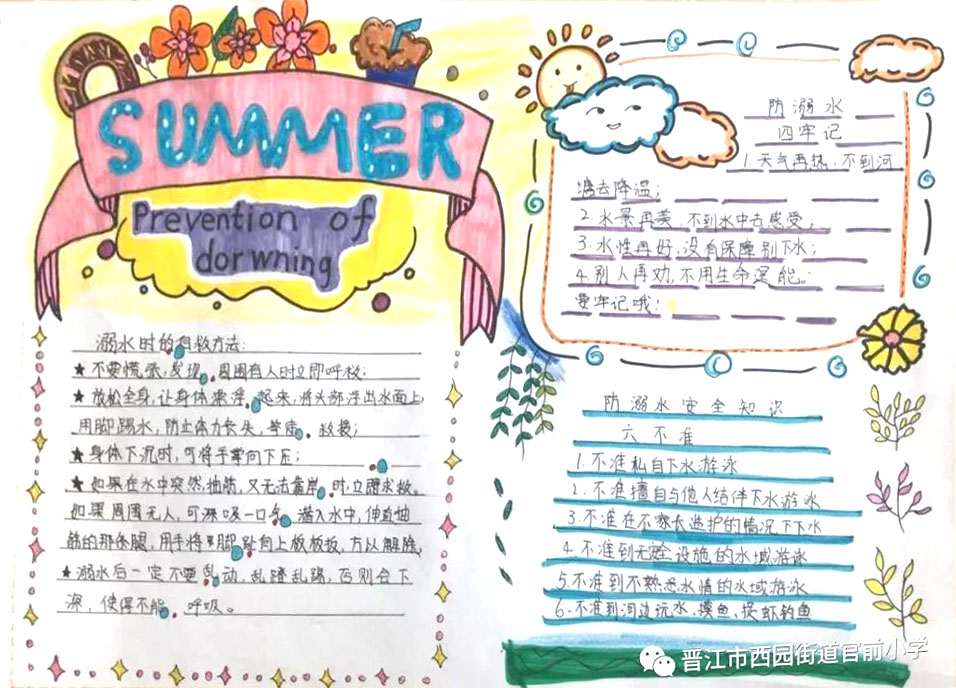 SUMMER
Prevention of
dorwning
溺水时的自救方法:
★不要慌张,发现周围有人时立即呼救;
★放松全身,让身体漂浮起来,将头部浮出水面上,
用脚踢水,防止体力丧失,等待救援;
★身体下沉时,可将手掌向下压;
★如果在水中突然抽筋,又无法靠岸时,立即求救。
如果周围无人,可深吸一口气潜入水中,伸直抽
筋的那条腿,用手将脚趾向上扳,以解除,
★溺水后一定不要乱动,乱蹬乱踢,否则会下
深,使得不能呼吸。
防溺水
四牢记
1.天气再热,不到河
塘去降温;
2.水景再美,不到水中去感受;
3.水性再好,没有保障别下水;
4.别人再劝,不用生命逞能。
要牢记哦!
防溺水安全知识
六不准
1.不准私自下水游泳
2.不准擅自与他人结伴下水游泳
3.不准在不家长监护的情况下下水
4.不准到无安全设施的水域游泳
5.不准到不熟悉水情的水域游泳
6.不准到河边玩水、摸鱼、捉虾钓鱼
晋江市西园街道官前小学